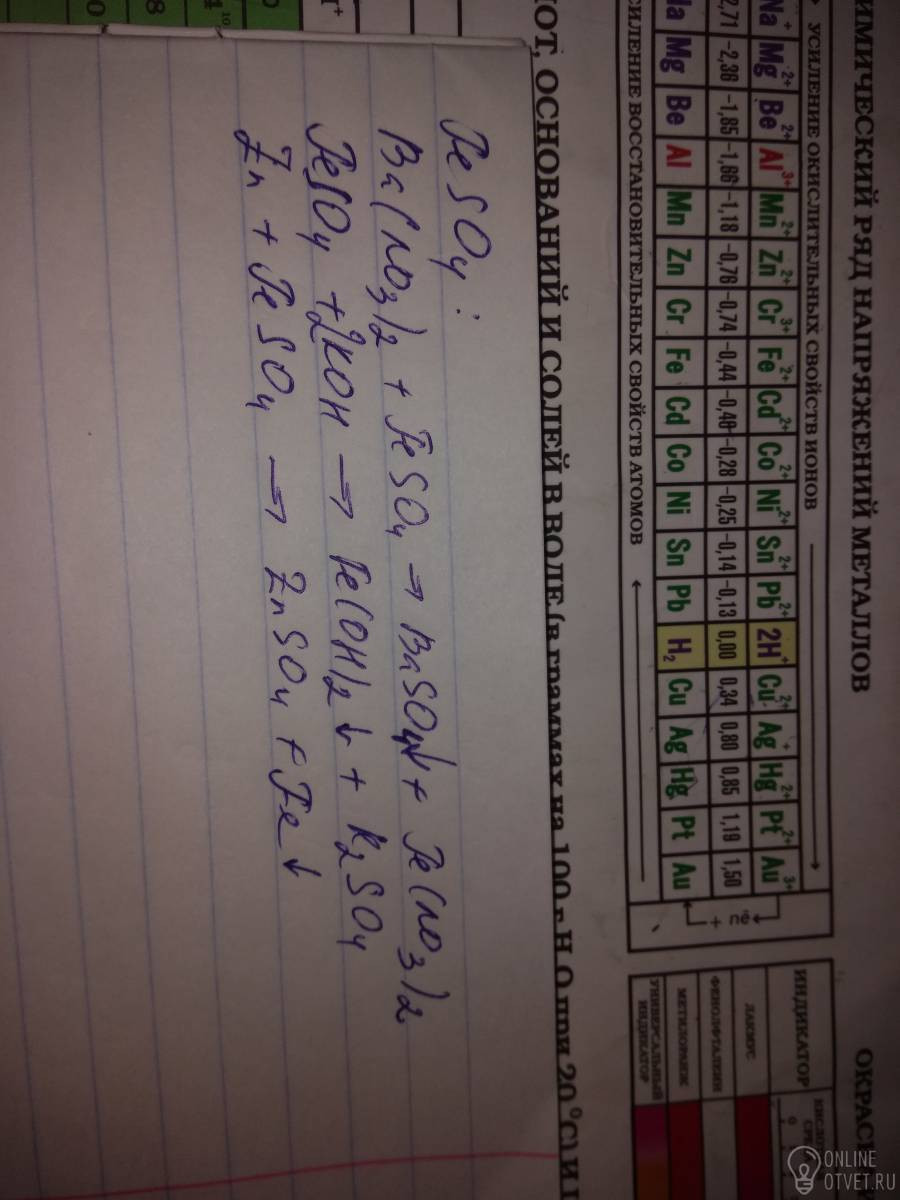 ИМИЧЕСКИЙ РЯД НАПРЯЖЕНИЙ МЕТАЛЛОВ
УСИЛЕНИЕ ОКИСЛИТЕЛЬНЫХ СВОЙСТВ ИОНОВ
Na⁺ Mg²⁺ Be²⁺ Al³⁺ Mn²⁺ Zn²⁺ Cr³⁺ Fe²⁺ Cd²⁺ Co²⁺ Ni²⁺ Sn²⁺ Pb²⁺ 2H⁺ Cu²⁺ Ag⁺ Hg²⁺ Pt²⁺ Au³⁺
2,71 –2,38 –1,85 –1,66 –1,18 –0,76 –0,74 –0,44 –0,40 –0,28 –0,25 –0,14 –0,13 0,00 0,34 0,80 0,85 1,19 1,50
Na Mg Be Al Mn Zn Cr Fe Cd Co Ni Sn Pb H₂ Cu Ag Hg Pt Au
+ nē
СИЛЕНИЕ ВОССТАНОВИТЕЛЬНЫХ СВОЙСТВ АТОМОВ
ОКРАС
ИНДИКАТОР
ЛАКМУС
ФЕНОЛФТАЛЕИН
МЕТИЛОРАНЖ
УНИВЕРСАЛЬНЫЙ ИНДИКАТОР
ЛОТ, ОСНОВАНИЙ И СОЛЕЙ В ВОДЕ (в граммах на 100 г H₂O при 20 °С) И
FeSO₄ :
Ba(NO₃)₂ + FeSO₄ → BaSO₄↓ + Fe(NO₃)₂
FeSO₄ + 2KOH → Fe(OH)₂ ↓ + K₂SO₄
Zn + FeSO₄ → ZnSO₄ + Fe↓
ONLINE
OTVET.RU